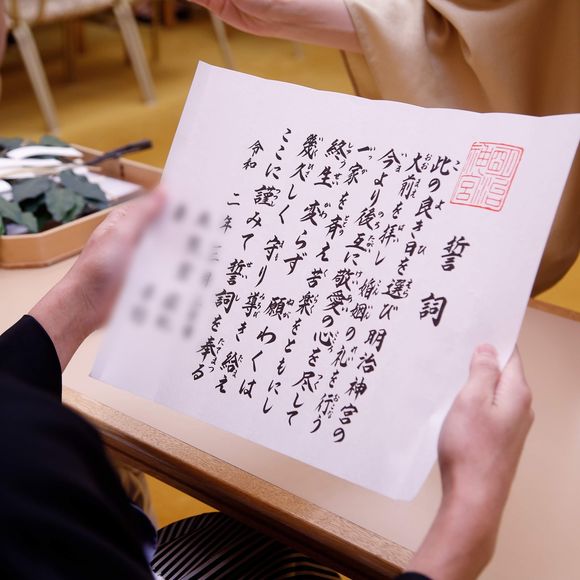 明治神宮
誓詞
此の良き日を選び明治神宮の
大前を拝し婚姻の礼を行う
今より後互に敬愛の心を尽して
一家を斉え苦楽をともにし
終生変らず願わくは
幾久しく守り導き給え
ここに謹みて誓詞を奉る
令和二年三月